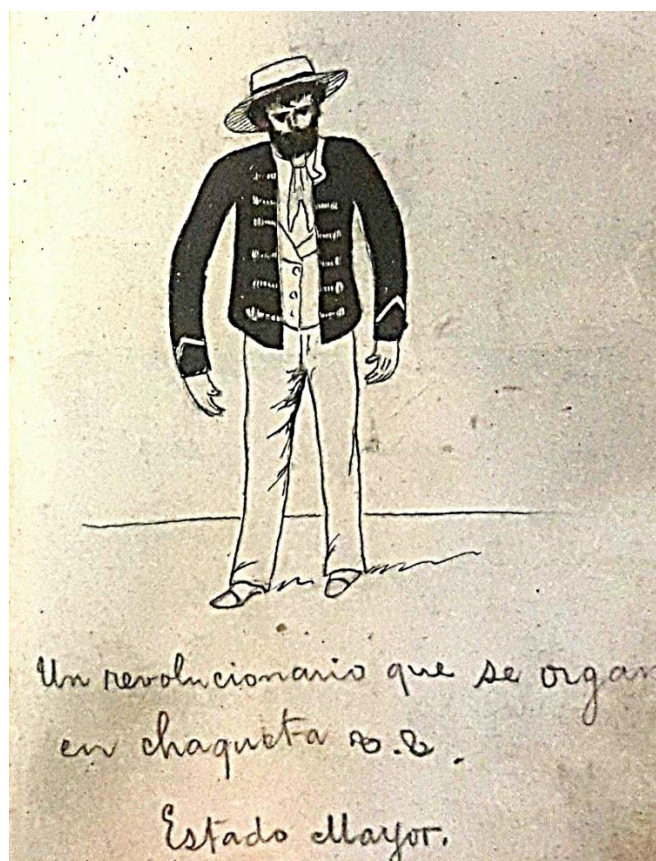 Un revolucionario que se organ
en chaqueta
Estado Mayor.